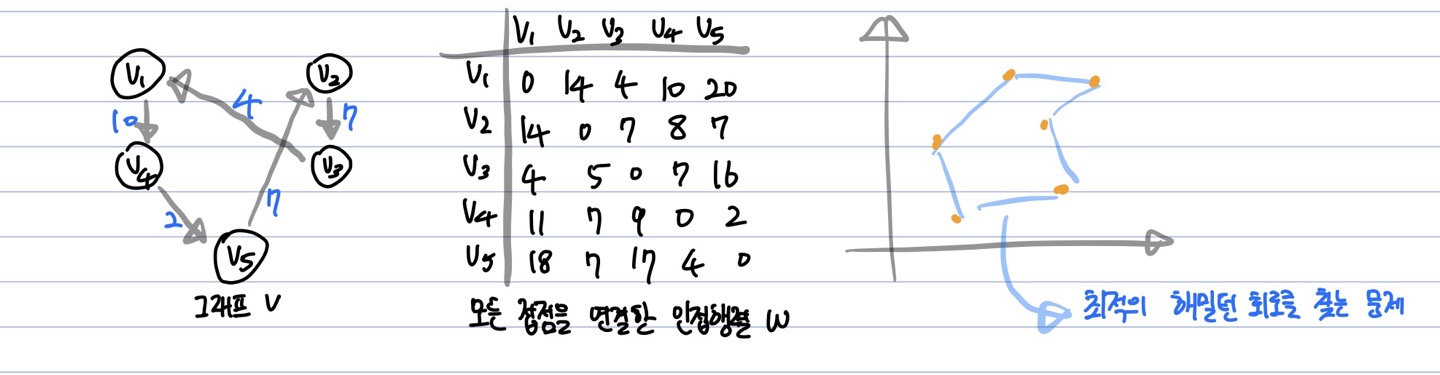 V₁ V₂
10 4 7
V₄ V₃
2 7
V₅
그래프 V
V₁ V₂ V₃ V₄ V₅
V₁ 0 14 4 10 20
V₂ 14 0 7 8 7
V₃ 4 5 0 7 16
V₄ 11 7 9 0 2
V₅ 18 7 17 4 0
모든 정점을 연결한 인접행렬 W
최적의 해밀턴 회로를 찾는 문제